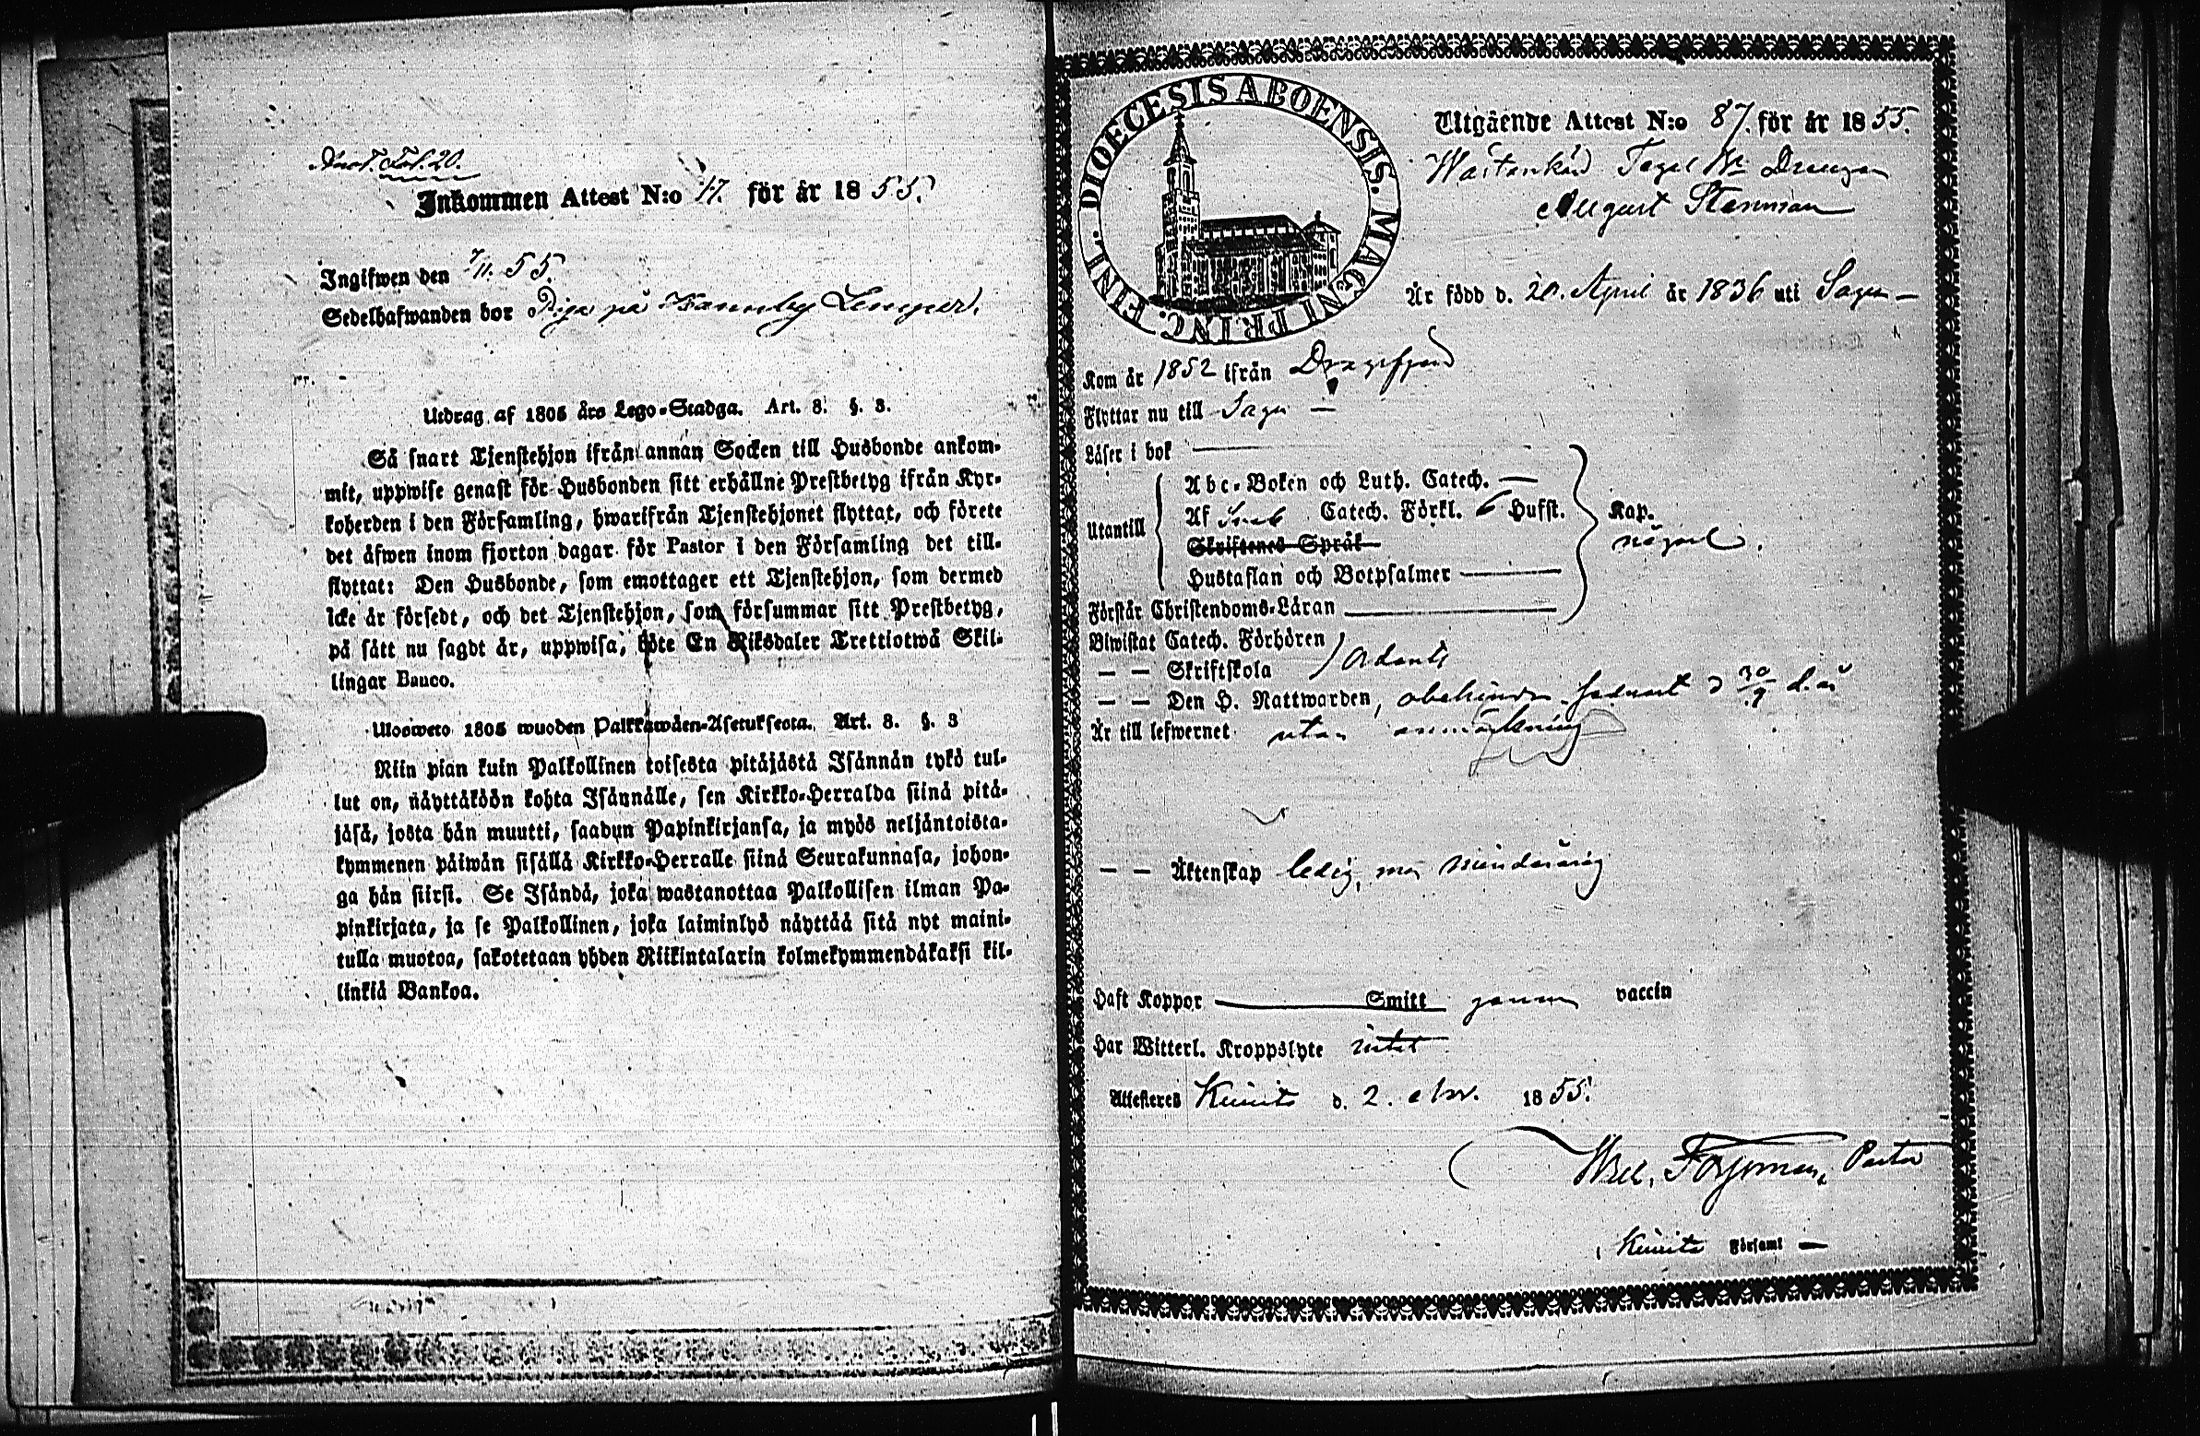 Annot. Fol. 20.
Inkommen Attest N:o 17. för år 1855.
Ingifwen den 7/11. 55.
Sedelhafwanden bor på Lemper.
Utdrag af 1805 års Lego-Stadga. Art. 8. §. 3.
Så snart Tjenstehjon ifrån annan Socken till Husbonde ankom-
mit, uppwise genast för Husbonden sitt erhållne Prestbetyg ifrån Kyr-
koherden i den Församling, hwarifrån Tjenstehjonet flyttat, och förete
det äfwen inom fjorton dagar för Pastor i den Församling det till-
flyttat: Den Husbonde, som emottager ett Tjenstehjon, som dermed
icke är försedt, och det Tjenstehjon, som försummar sitt Prestbetyg,
på sätt nu sagdt är, uppwisa, böte En Riksdaler Trettiotwå Skil-
lingar Banco.
Ulosweto 1805 wuoden Palkkawäen-Asetuksesta. Art. 8. §. 3
Niin pian kuin Palkollinen toisesta pitäjästä Isännän tykö tul-
lut on, näyttäköön kohta Isännälle, sen Kirkko-Herralda siinä pitä-
jäsä, josta hän muutti, saadun Papinkirjansa, ja myös neljäntoista-
kymmenen päiwän sisällä Kirkko-Herralle siinä Seurakunnasa, johon-
ga hän siirsi. Se Isändä, joka wastanottaa Palkollisen ilman Pa-
pinkirjata, ja se Palkollinen, joka laiminlyö näyttää sitä nyt maini-
tulla muotoa, sakotetaan yhden Riikintalarin kolmekymmendäkaksi kil-
linkiä Bankoa.
DIOECESIS ABOENSIS. MAGNI PRINC. FINL.
Utgående Attest N:o 87. för år 1855.
Drengen
August Stenman
Är född d. 20. April år 1836 uti Sagu
Kom år 1852 ifrån Dragsfjerd
Flyttar nu till Sagu
Läser i bok
Utantill
Abc-Boken och Luth. Catech.
Af Catech. Förkl. 6 Hufst.
Skriftenes Språk
Hustaflan och Botpsalmer
Kap.
någorl.
Förstår Christendoms-Läran
Biwistat Catech. Förhören
— — Skriftskola
— — Den H. Nattwarden, obehindr. sednast d 30/9 d. å
Är till lefwernet utan anmärkning
— — Äktenskap ledig, men minderårig
Haft Koppor Smitt genom vaccin
Har Witterl. Kroppslyte intet
Attesteres Kimito d. 2. Nov. 1855.
Wilh. Forsman, Pastor
i Kimito Församl